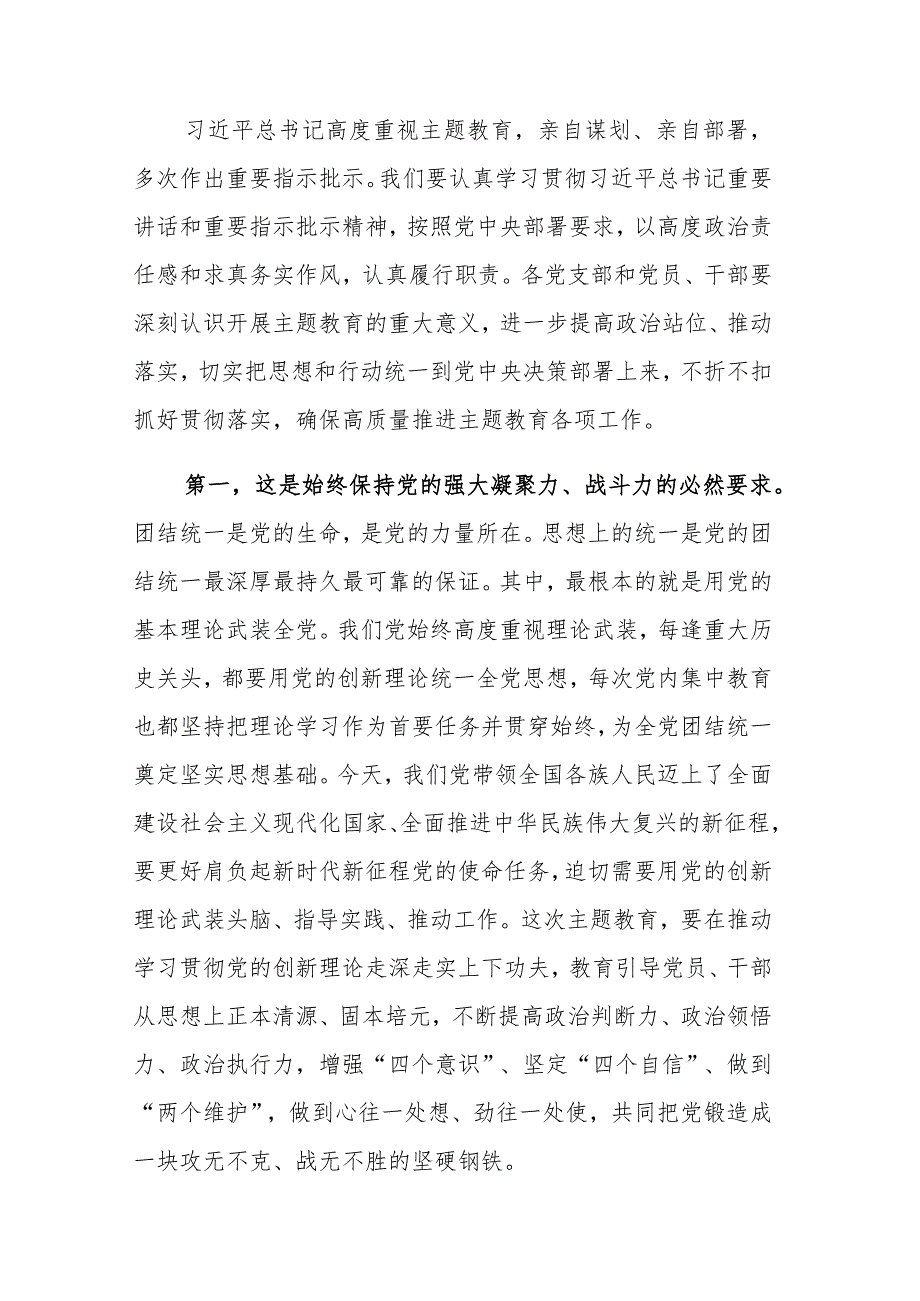 习近平总书记高度重视主题教育，亲自谋划、亲自部署，
多次作出重要指示批示。我们要认真学习贯彻习近平总书记重要
讲话和重要指示批示精神，按照党中央部署要求，以高度政治责
任感和求真务实作风，认真履行职责。各党支部和党员、干部要
深刻认识开展主题教育的重大意义，进一步提高政治站位、推动
落实，切实把思想和行动统一到党中央决策部署上来，不折不扣
抓好贯彻落实，确保高质量推进主题教育各项工作。
第一，这是始终保持党的强大凝聚力、战斗力的必然要求。
团结统一是党的生命，是党的力量所在。思想上的统一是党的团
结统一最深厚最持久最可靠的保证。其中，最根本的就是用党的
基本理论武装全党。我们党始终高度重视理论武装，每逢重大历
史关头，都要用党的创新理论统一全党思想，每次党内集中教育
也都坚持把理论学习作为首要任务并贯穿始终，为全党团结统一
奠定坚实思想基础。今天，我们党带领全国各族人民迈上了全面
建设社会主义现代化国家、全面推进中华民族伟大复兴的新征程，
要更好肩负起新时代新征程党的使命任务，迫切需要用党的创新
理论武装头脑、指导实践、推动工作。这次主题教育，要在推动
学习贯彻党的创新理论走深走实上下功夫，教育引导党员、干部
从思想上正本清源、固本培元，不断提高政治判断力、政治领悟
力、政治执行力，增强“四个意识”、坚定“四个自信”、做到
“两个维护”，做到心往一处想、劲往一处使，共同把党锻造成
一块攻无不克、战无不胜的坚硬钢铁。